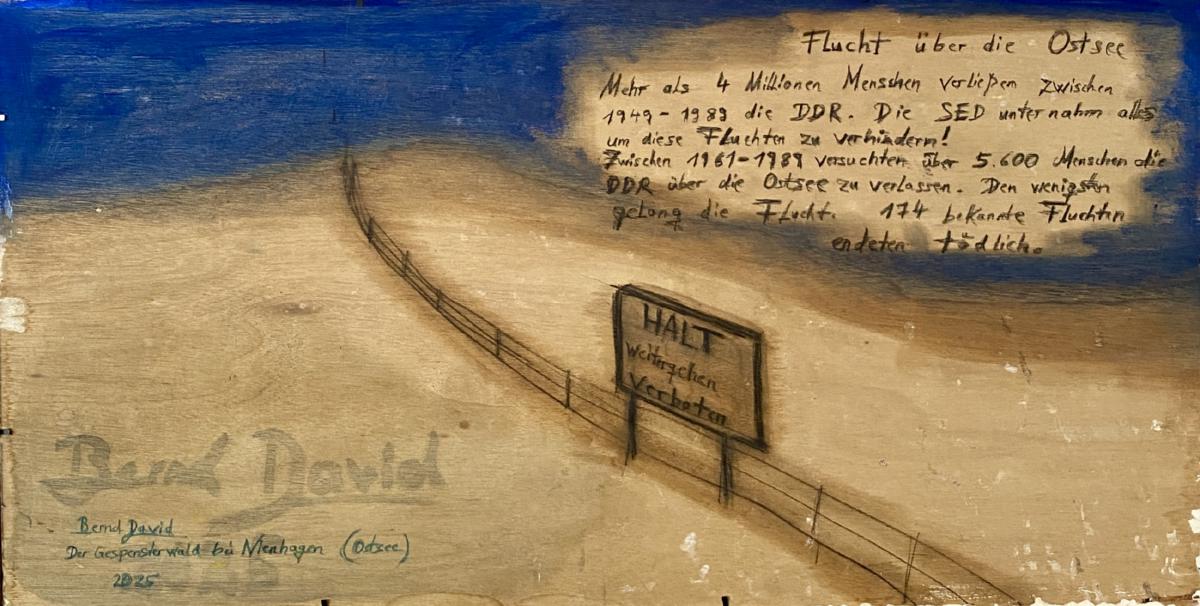 Flucht über die Ostsee
Mehr als 4 Millionen Menschen verließen zwischen
1949-1989 die DDR. Die SED unternahm alles
um diese Fluchten zu verhindern!
Zwischen 1961-1989 versuchten über 5.600 Menschen die
DDR über die Ostsee zu verlassen. Den wenigsten
gelang die Flucht. 174 bekannte Fluchten
endeten tödlich.
HALT
Weitergehen
Verboten
Bernd David
Bernd David
Der Gespensterwald bei Nienhagen (Ostsee)
2025